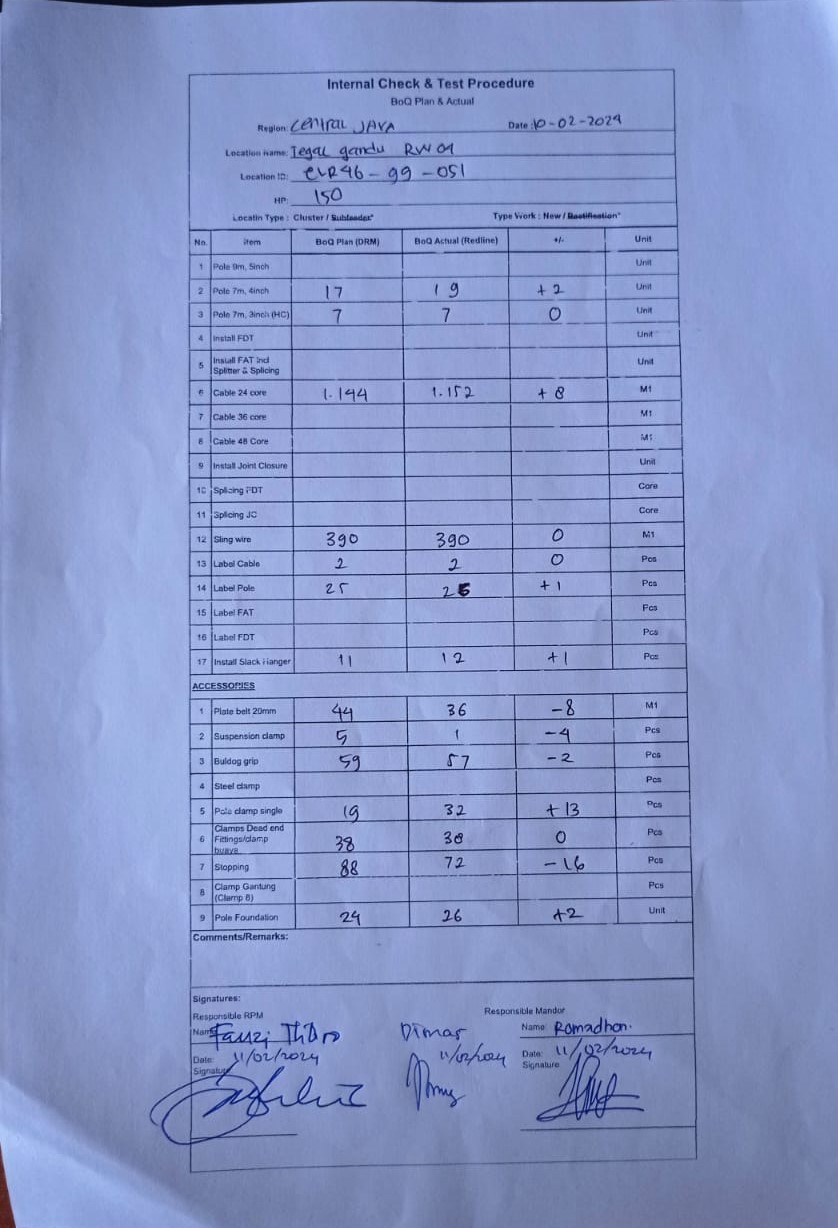 Internal Check & Test Procedure
BoQ Plan & Actual
Region: CENTRAL JAVA Date: 10-02-2024
Location Name: Tegal gandu RW 04
Location ID: CLR46-99-051
HP: 150
Locatin Type : Cluster / Subfeeder* Type Work : New / Rectification*
No. Item BoQ Plan (DRM) BoQ Actual (Redline) +/- Unit
1 Pole 9m, 5inch Unit
2 Pole 7m, 4inch 17 19 +2 Unit
3 Pole 7m, 3inch (HC) 7 7 0 Unit
4 Install FDT Unit
5 Install FAT incl Splitter & Splicing Unit
6 Cable 24 core 1.144 1.152 +8 M1
7 Cable 36 core M1
8 Cable 48 Core M1
9 Install Joint Closure Unit
10 Splicing FDT Core
11 Splicing JC Core
12 Sling wire 390 390 0 M1
13 Label Cable 2 2 0 Pcs
14 Label Pole 25 26 +1 Pcs
15 Label FAT Pcs
16 Label FDT Pcs
17 Install Slack Hanger 11 12 +1 Pcs
ACCESSORIES
1 Plate belt 20mm 44 36 -8 M1
2 Suspension clamp 5 1 -4 Pcs
3 Buldog grip 59 57 -2 Pcs
4 Steel clamp Pcs
5 Pole clamp single 19 32 +13 Pcs
6 Clamps Dead end Fittings/clamp buaya 38 38 0 Pcs
7 Stopping 88 72 -16 Pcs
8 Clamp Gantung (Clamp 8) Pcs
9 Pole Foundation 24 26 +2 Unit
Comments/Remarks:
Signatures:
Responsible RPM Responsible Mandor
Name: Fauzi Dimas Name: Romadhon.
Date: 11/02/2024 11/02/2024 Date: 11/02/2024
Signature Signature